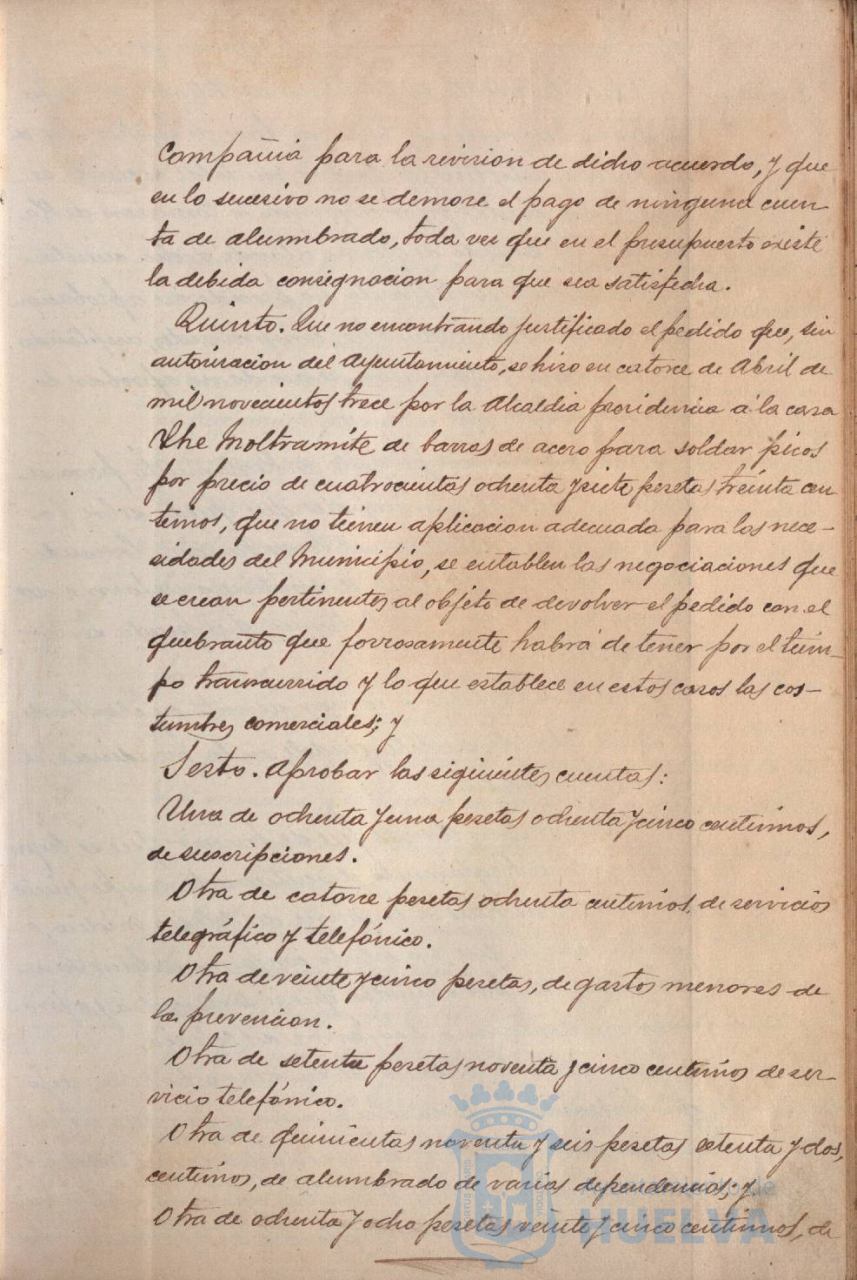 Compañia para la revision de dicho acuerdo, y que
en lo sucesivo no se demore el pago de ninguna cuen-
ta de alumbrado, toda vez que en el presupuesto existe
la debida consignacion para que sea satisfecha.
Quinto. Que no encontrando justificado el pedido que, sin
autorizacion del Ayuntamiento, se hizo en catorce de Abril de
mil novecientos trece por la Alcaldia providencia á la casa
The de barras de acero para soldar picos
por precio de cuatrocientas ochenta y siete pesetas treinta cen
timos, que no tienen aplicacion adecuada para las nece-
sidades del Municipio, se entablen las negociaciones que
se crean pertinentes al objeto de devolver el pedido con el
quebranto que forzosamente habrá de tener por el tiem-
po transcurrido y lo que establece en estos casos las cos-
tumbres comerciales; y
Sesto. Aprobar las siguientes cuentas:
Una de ochenta y una pesetas ochenta y cinco centimos,
de suscripciones.
Otra de catorce pesetas ochenta centimos, de servicios
telegráfico y telefónico.
Otra de veinte y cinco pesetas, de gastos menores de
la prevencion.
Otra de setenta pesetas noventa y cinco centimos de ser-
vicio telefónico.
Otra de quinientas noventa y seis pesetas setenta y dos
centimos, de alumbrado de varias dependencias; y
Otra de ochenta y ocho pesetas veinte y cinco centimos, de
HUELVA